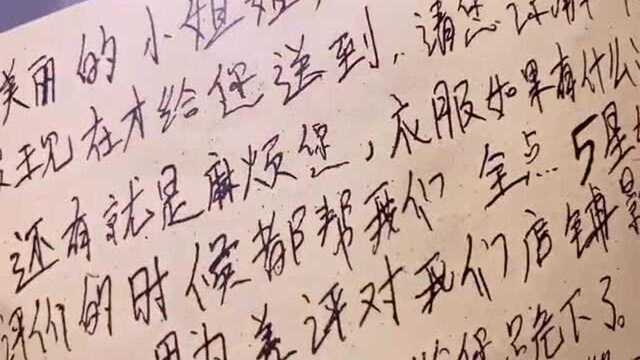 美丽的小姐姐
现在才给您送到,请您谅解
还有就是麻烦您,衣服如果有什么
评价的时候都帮我们全点5星
因为差评对我们店铺影
跪下了。